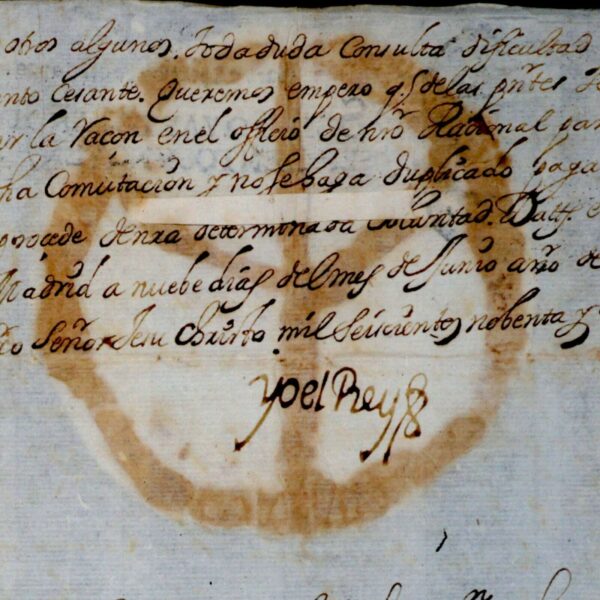 otros algunos. Toda duda Consulta dificultad
ento Cesante. Queremos empero q.e de las p̃ntes
la racon en el officio de nr̃o Racional par
ha Comutacion y no se haga duplicado paga
procede de nr̃a determinada Voluntad. Datt.
Madrid a nuebe dias del mes de Junio año de
Señor Jesu Christo mil seiscientos nobenta y
Yo el Rey